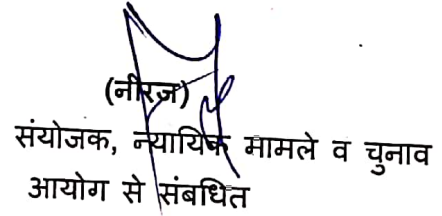 (नीरज)
संयोजक, न्यायिक मामले व चुनाव
आयोग से संबधित